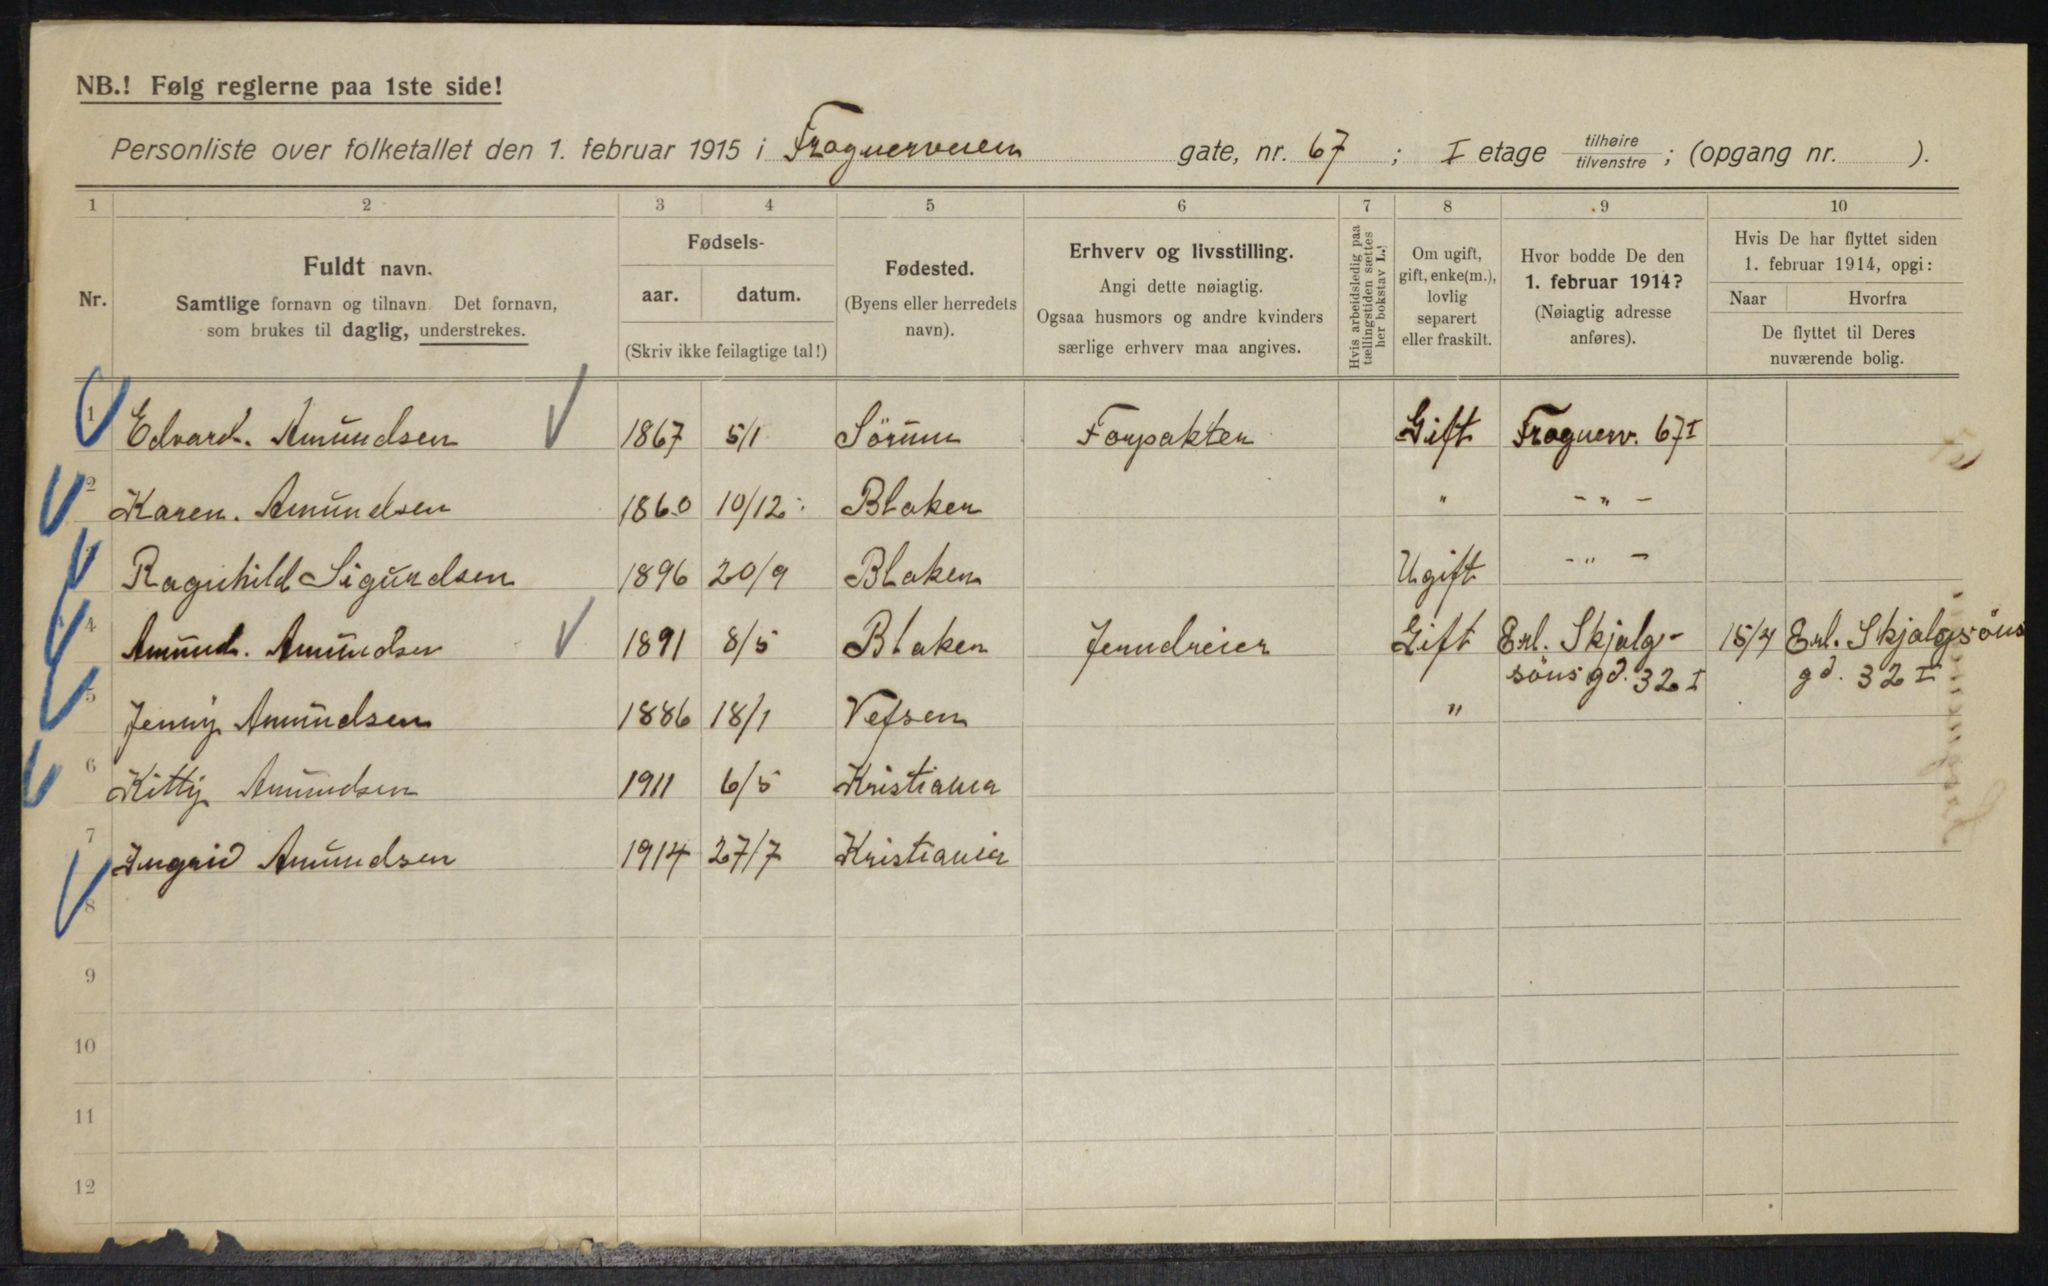 NB.! Følg reglerne paa 1ste side!
Personliste over folketallet den 1. februar 1915 i Frognerveien gate, nr. 67 ; I etage tilhøire tilvenstre ; (opgang nr. ).
1 2 3 4 5 6 7 8 9 10
Nr.
Fuldt navn.
Samtlige fornavn og tilnavn. Det fornavn,
som brukes til daglig, understrekes.
Fødsels-
aar. datum.
(Skriv ikke feilagtige tal!)
Fødested.
(Byens eller herredets
navn).
Erhverv og livsstilling.
Angi dette nøiagtig.
Ogsaa husmors og andre kvinders
særlige erhverv maa angives.
Hvis arbeidsledig paa
tællingstiden sættes
her bokstav L.!
Om ugift,
gift, enke(m.),
lovlig
separert
eller fraskilt.
Hvor bodde De den
1. februar 1914?
(Nøiagtig adresse
anføres).
Hvis De har flyttet siden
1. februar 1914, opgi:
Naar Hvorfra
De flyttet til Deres
nuværende bolig.
1 Edvard. Amundsen 1867 5/1 Sörum Forpakter Gift Frognerv. 67 I
2 Karen. Amundsen 1860 10/12 Blaker " - " -
Ragnhild Sigurdsen 1896 20/9 Blaker Ugift - " -
4 Amund. Amundsen 1891 8/5 Blaker Jerndreier Gift Erl. Skjalg- 15/4 Erl. Skjalgsöns
söns gd. 32 I gd. 32 I
5 Jenny Amundsen 1886 18/1 Vefsen "
6 Kitty Amundsen 1911 6/5 Kristiania
7 Ingrid Amundsen 1914 27/7 Kristiania
8
9
10
11
12